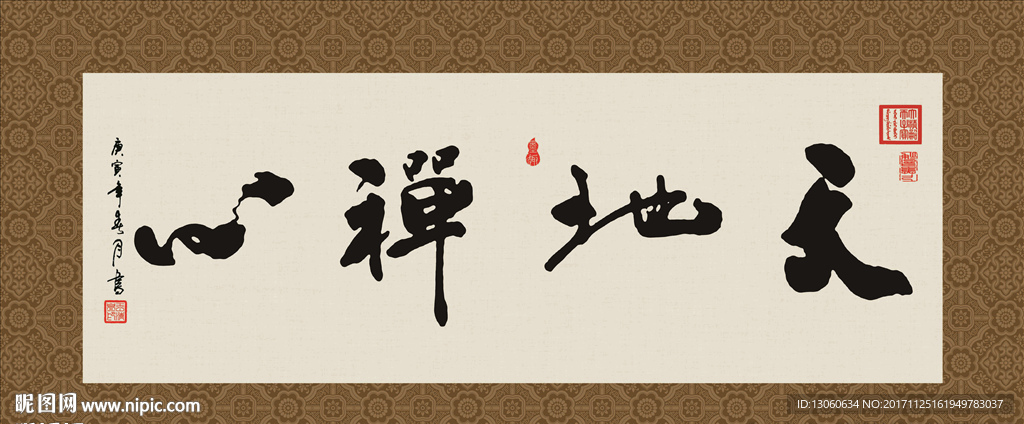 天地禪心
庚寅年春月書
昵图网 www.nipic.com
ID:13060634 NO:20171125161949783037